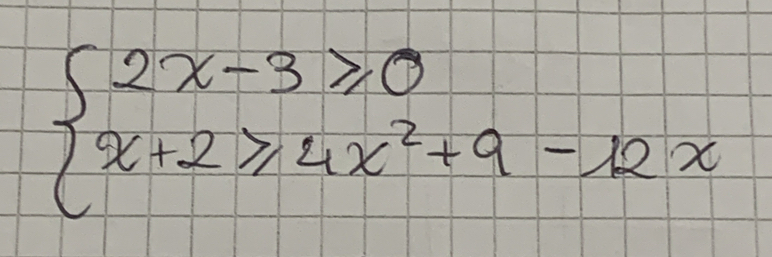 2x-3⩾0
x+2⩾4x²+9-12x